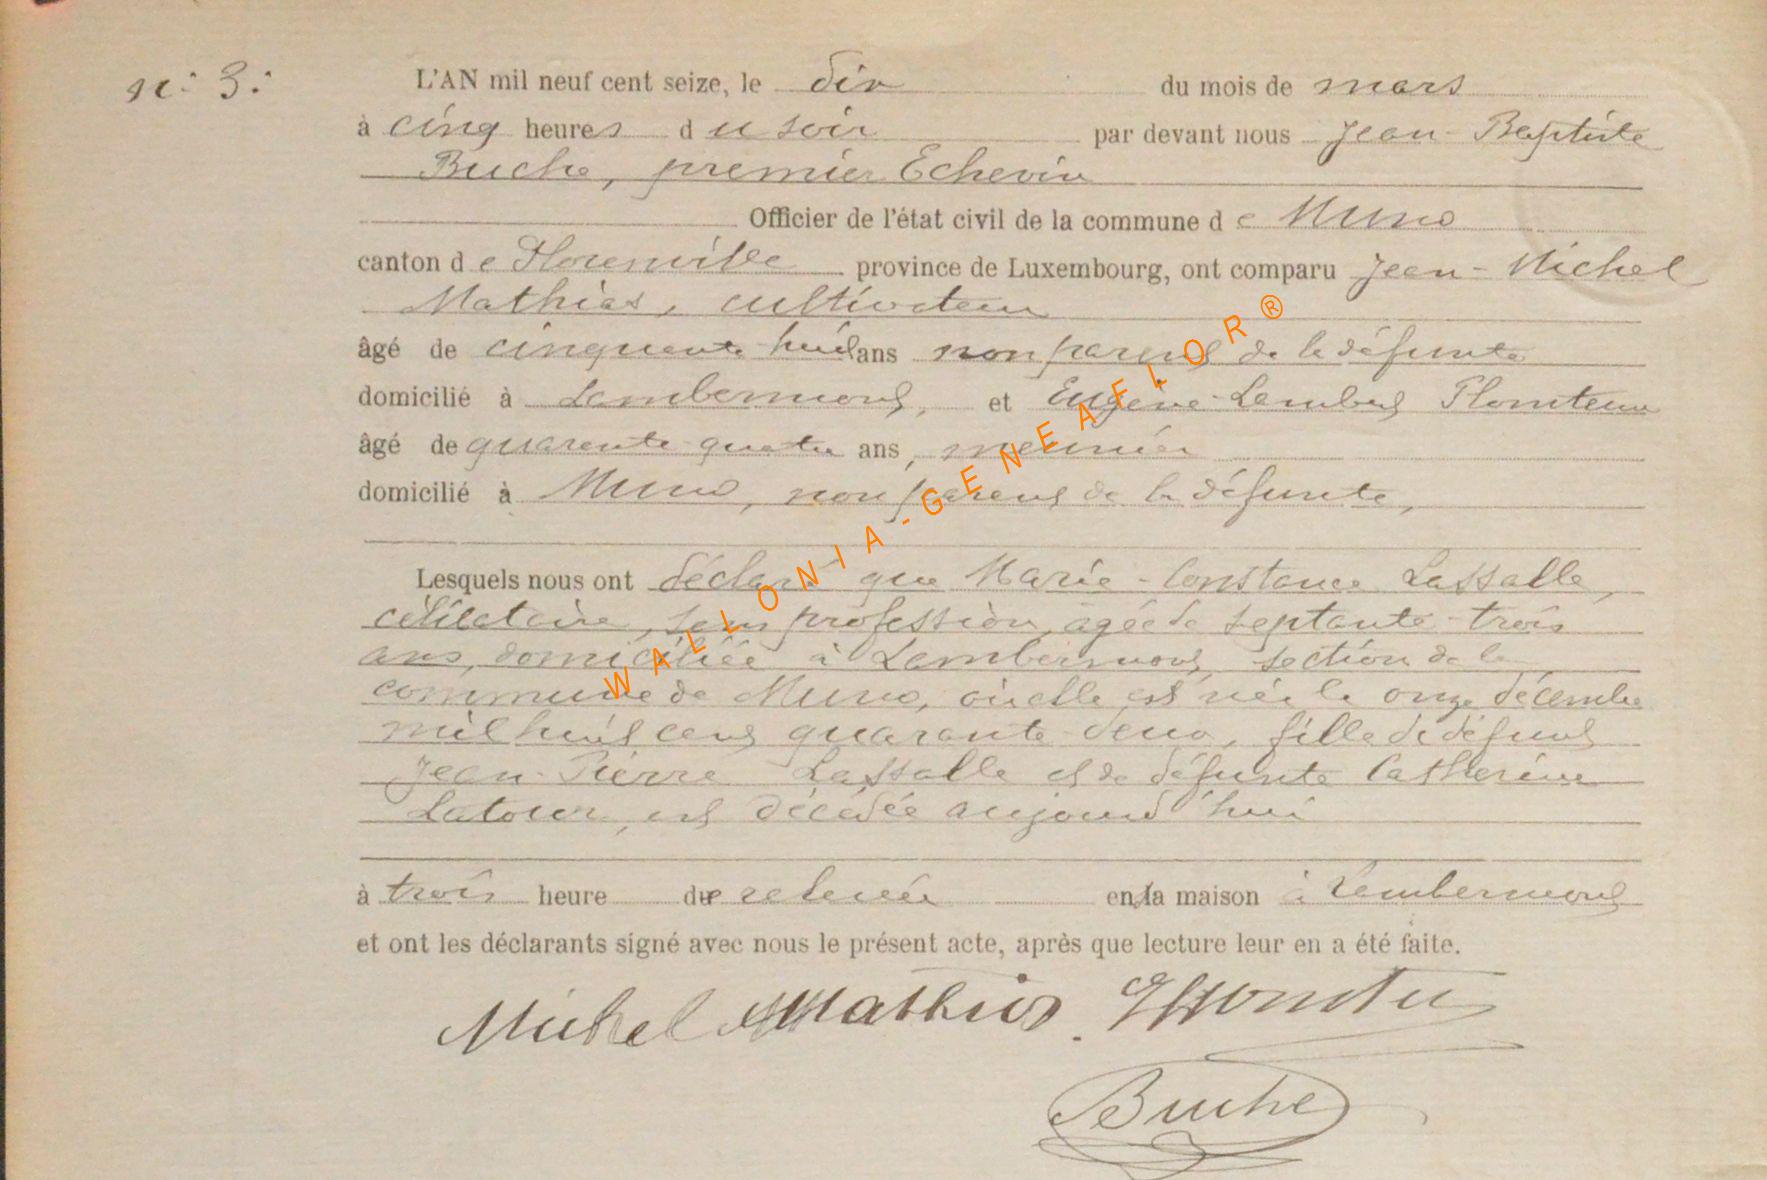 n: 3:
L'AN mil neuf cent seize, le dix du mois de mars
à cinq heures du soir par devant nous Jean-Baptiste
Buche, premier Echevin
Officier de l'état civil de la commune de Muno
canton de Florenville province de Luxembourg, ont comparu Jean-Michel
Mathias, cultivateur
âgé de cinquante huit ans non parent de la défunte
domicilié à Lambermont, et Eugène-Lambert
âgé de quarante quatre ans, meunier
domicilié à Muno, non parent de la défunte,
Lesquels nous ont déclaré que Marie-Constance Lassalle,
célibataire, sans profession, âgée de septante-trois
ans, domiciliée à Lambermont, section de la
commune de Muno, où elle est née le onze décembre
mil huit cent quarante-deux, fille de défunt
Jean-Pierre Lassalle et de défunte Catherine
Latour, est décédée aujourd'hui
à trois heure de relevée en la maison à Lambermont
et ont les déclarants signé avec nous le présent acte, après que lecture leur en a été faite.
Michel Mathias
Buche
WALLONIA-GENEAFLOR®